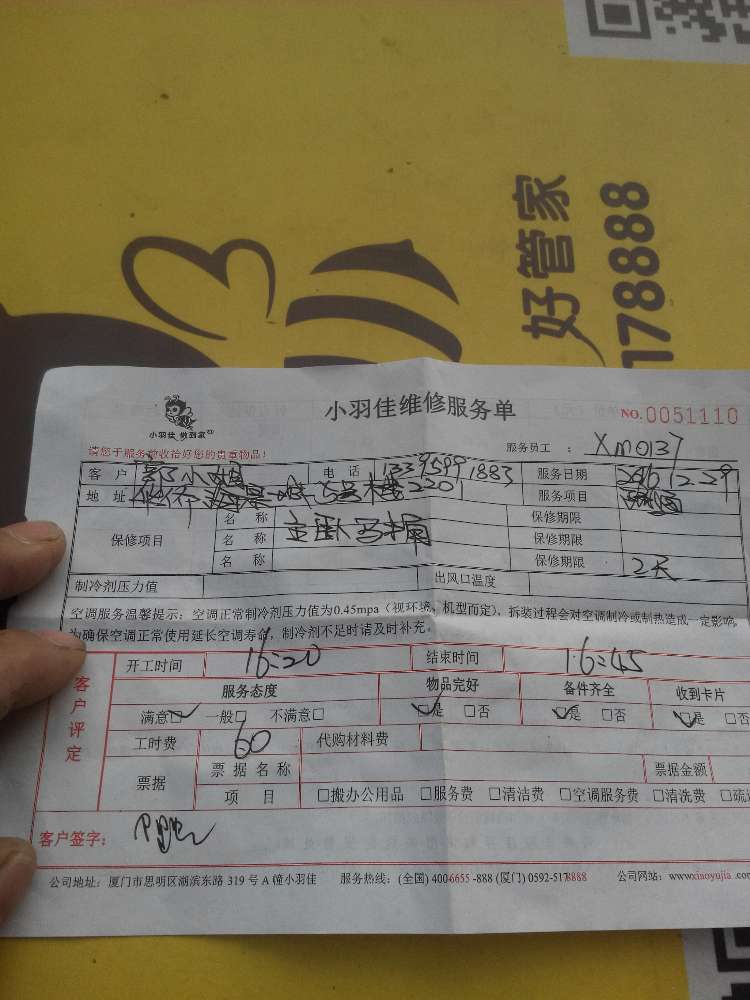 好管家
178888
小羽佳维修服务单
NO.0051110
小羽佳 做到家
请您于服务前收拾好您的贵重物品!
服务员工 : XM0137
客户 郭小姐 电话 13395991883 服务日期 2016.12.29
地址 5号楼2201 服务项目
保修项目
名称 保修期限
名称 保修期限
名称 保修期限 2天
制冷剂压力值 出风口温度
空调服务温馨提示:空调正常制冷剂压力值为0.45mpa(视环境、机型而定),拆装过程会对空调制冷或制热造成一定影响,
为确保空调正常使用延长空调寿命,制冷剂不足时请及时补充。
客户评定
开工时间 16:20 结束时间 16:45
服务态度 物品完好 备件齐全 收到卡片
满意☑ 一般□ 不满意□ ☑是 □否 ☑是 □否 ☑是 □否
工时费 60 代购材料费
票据 票据名称 票据金额
项目 □搬办公用品 □服务费 □清洁费 □空调服务费 □清洗费 □疏
客户签字:
公司地址:厦门市思明区湖滨东路 319 号 A 幢小羽佳 服务热线:(全国) 4006655 -888 (厦门) 0592-5178888 公司网站:www.xiaoyujia .com